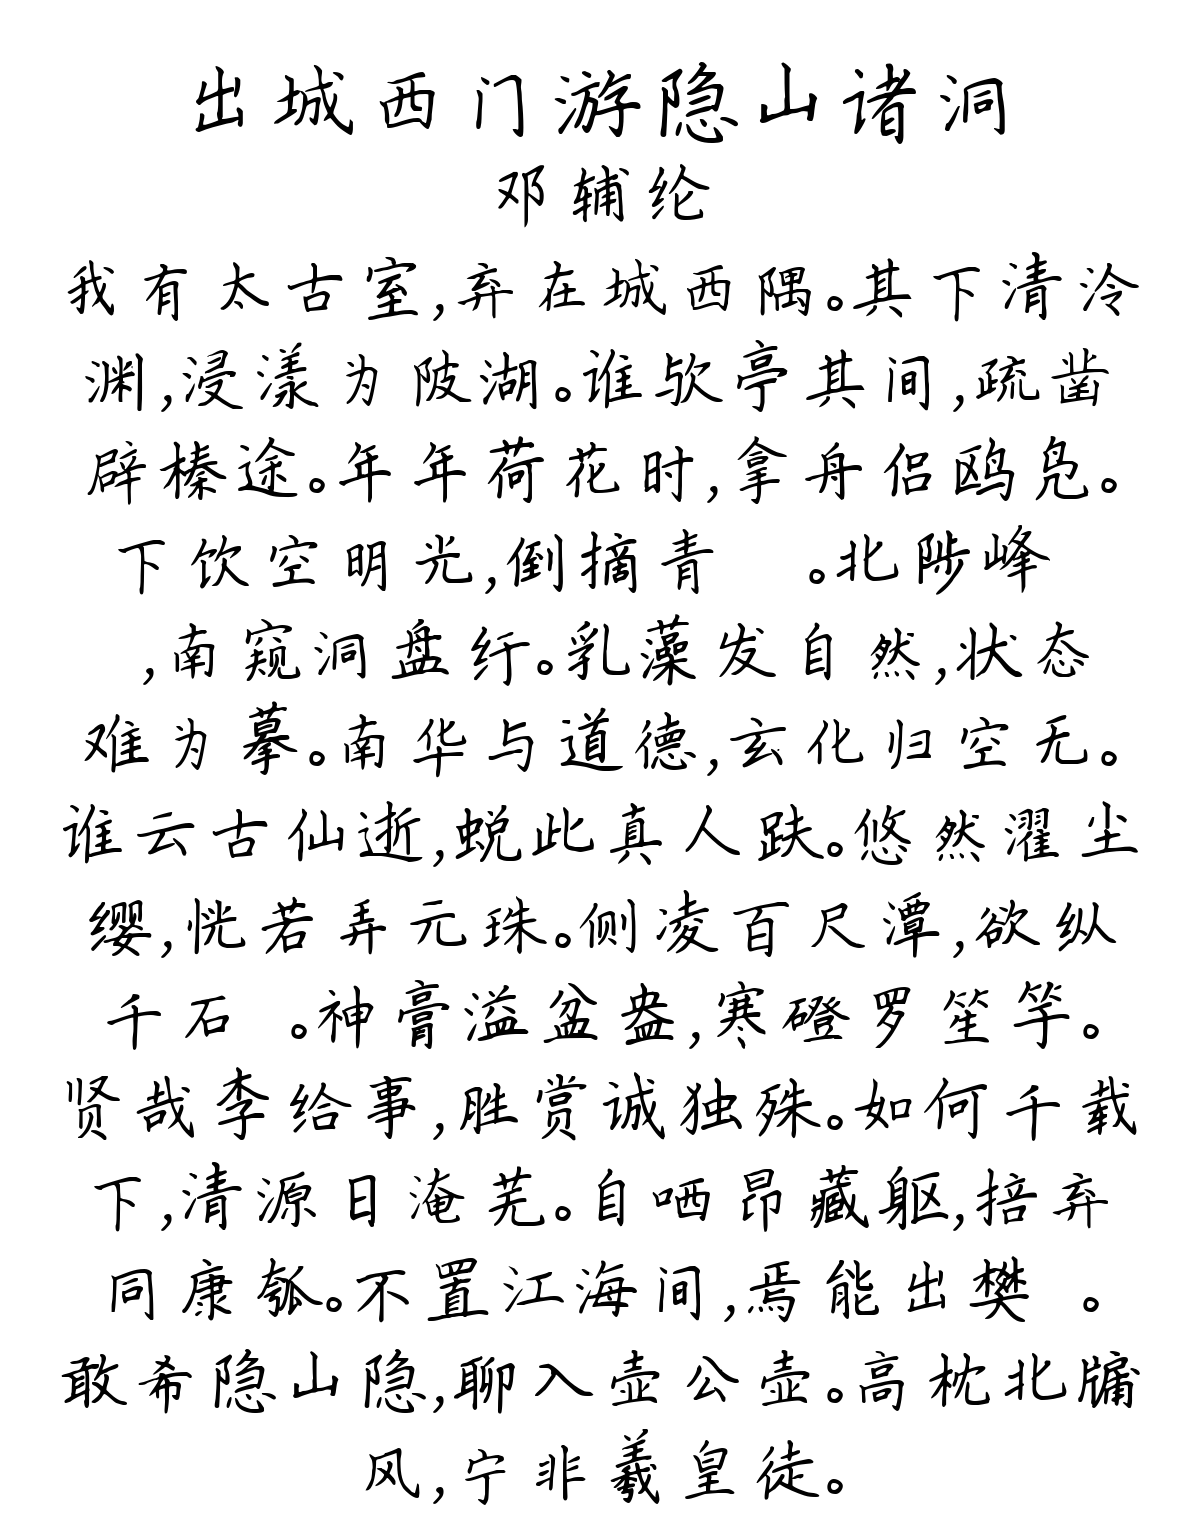 出城西门游隐山诸洞
邓辅纶
我有太古室,弃在城西隅。其下清泠
渊,浸漾为陂湖。谁欤亭其间,疏凿
辟榛途。年年荷花时,拿舟侣鸥凫。
下饮空明光,倒摘青 。北陟峰
,南窥洞盘纡。乳藻发自然,状态
难为摹。南华与道德,玄化归空无。
谁云古仙逝,蜕此真人趺。悠然濯尘
缨,恍若弄元珠。侧凌百尺潭,欲纵
千石 。神膏溢盆盎,寒磴罗笙竽。
贤哉李给事,胜赏诚独殊。如何千载
下,清源日淹芜。自哂昂藏躯,掊弃
同康瓠。不置江海间,焉能出樊 。
敢希隐山隐,聊入壶公壶。高枕北牖
风,宁非羲皇徒。